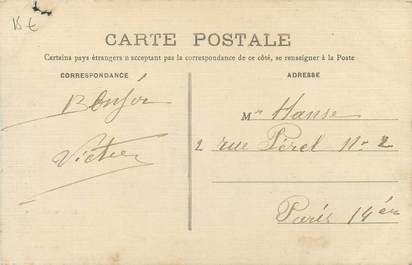 15 €
CARTE POSTALE
Certains pays étrangers n'acceptant pas la correspondance de ce côté, se renseigner à la Poste
CORRESPONDANCE
ADRESSE
Bonjour
Victor
Mr Hanse
2 rue Pérel No 2
Paris 14èm